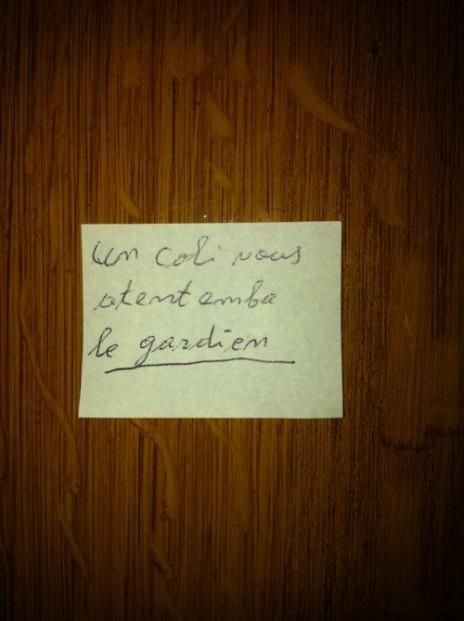 Un coli vous
atent amba
le gardien